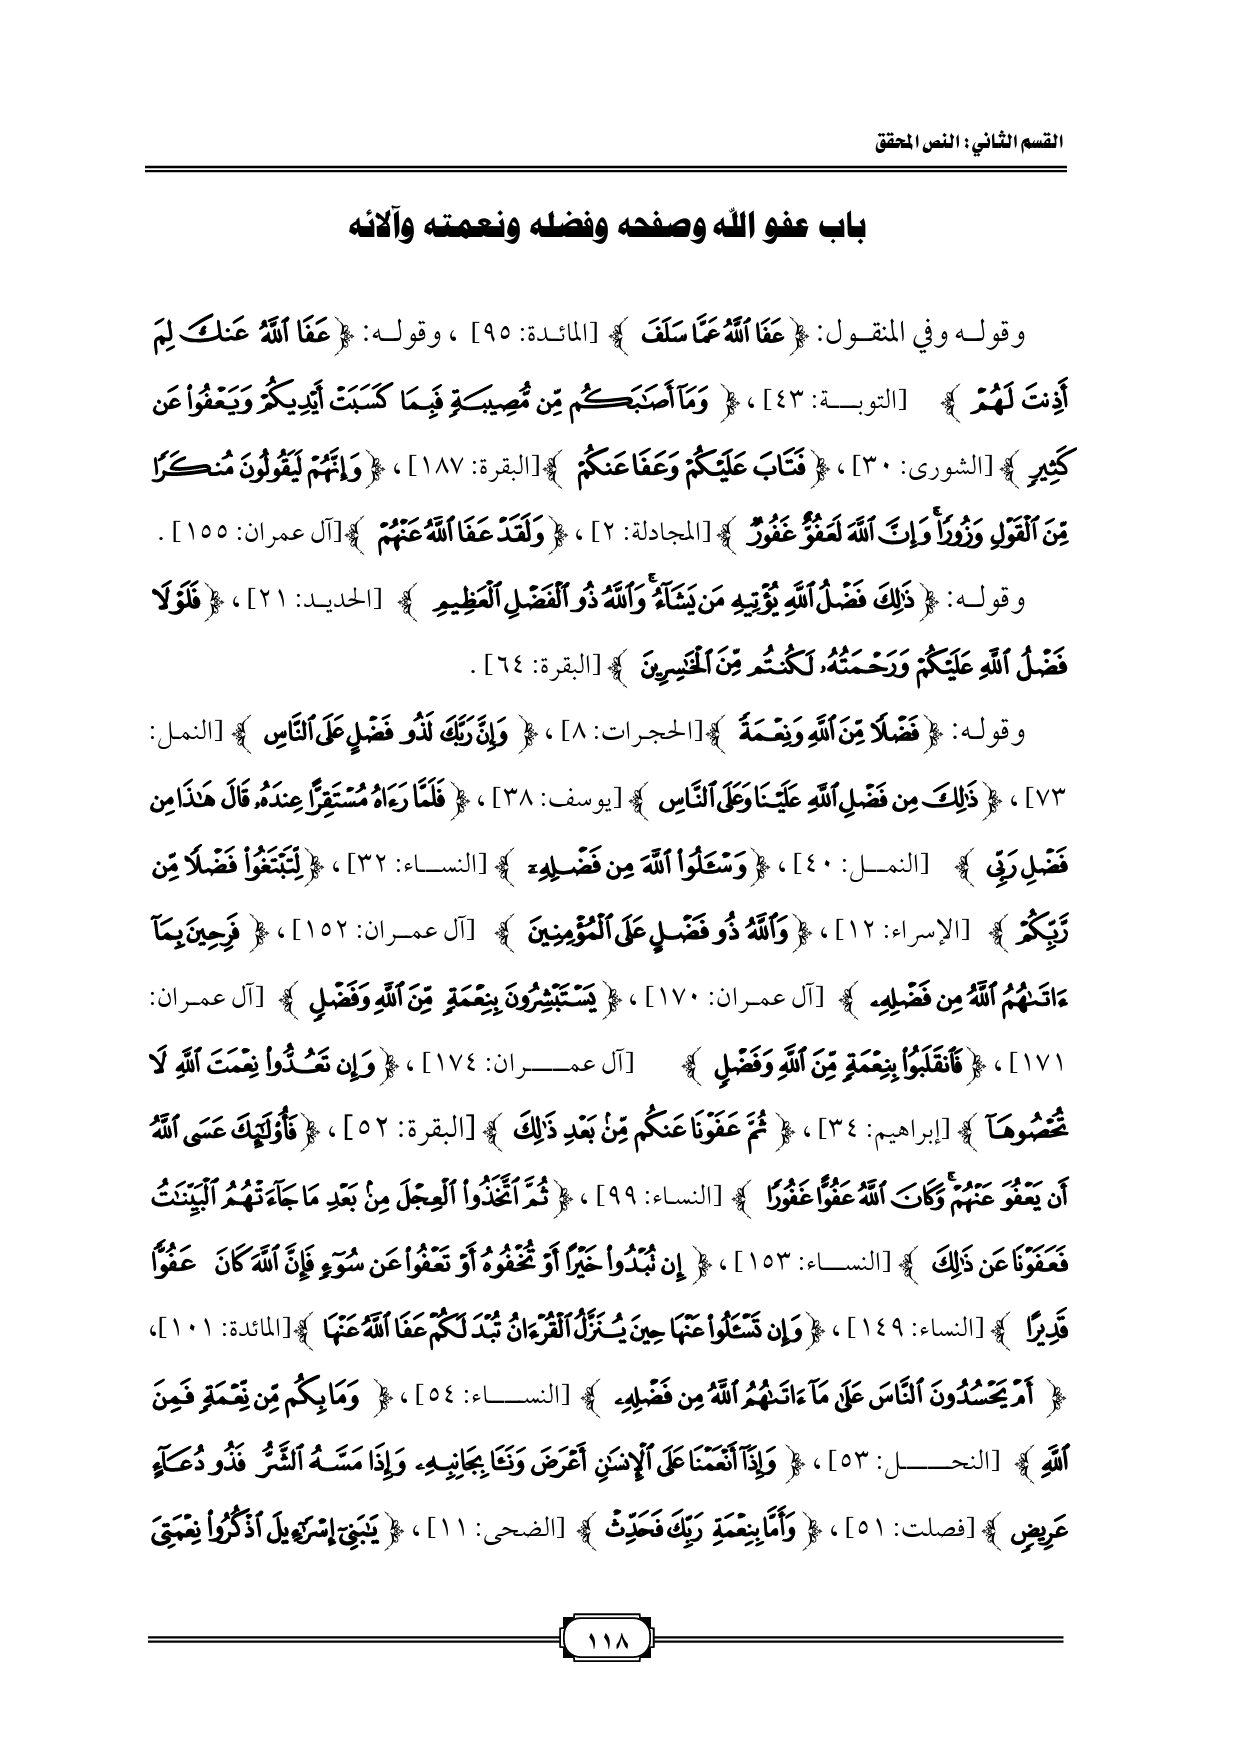 القسم الثاني: النص المحقق
باب عفو الله وصفحه وفضله ونعمته وآلائه
وقولـه وفي المنقـول: ﴿ عَفَا ٱللَّهُ عَمَّا سَلَفَ ﴾ [المائدة: ٩٥] ، وقولـه: ﴿ عَفَا ٱللَّهُ عَنكَ لِمَ
أَذِنتَ لَهُمْ ﴾ [التوبـة: ٤٣]، ﴿ وَمَآ أَصَٰبَكُم مِّن مُّصِيبَةٍ فَبِمَا كَسَبَتْ أَيْدِيكُمْ وَيَعْفُوا۟ عَن
كَثِيرٍ ﴾ [الشورى: ٣٠]، ﴿ فَتَابَ عَلَيْكُمْ وَعَفَا عَنكُمْ ﴾ [البقرة: ١٨٧]، ﴿ وَإِنَّهُمْ لَيَقُولُونَ مُنكَرًا
مِّنَ ٱلْقَوْلِ وَزُورًا ۚ وَإِنَّ ٱللَّهَ لَعَفُوٌّ غَفُورٌ ﴾ [المجادلة: ٢]، ﴿ وَلَقَدْ عَفَا ٱللَّهُ عَنْهُمْ ﴾ [آل عمران: ١٥٥] .
وقولـه: ﴿ ذَٰلِكَ فَضْلُ ٱللَّهِ يُؤْتِيهِ مَن يَشَآءُ ۚ وَٱللَّهُ ذُو ٱلْفَضْلِ ٱلْعَظِيمِ ﴾ [الحديـد: ٢١]، ﴿ فَلَوْلَا
فَضْلُ ٱللَّهِ عَلَيْكُمْ وَرَحْمَتُهُۥ لَكُنتُم مِّنَ ٱلْخَٰسِرِينَ ﴾ [البقرة: ٦٤] .
وقولـه: ﴿ فَضْلًا مِّنَ ٱللَّهِ وَنِعْمَةً ﴾ [الحجرات: ٨]، ﴿ وَإِنَّ رَبَّكَ لَذُو فَضْلٍ عَلَى ٱلنَّاسِ ﴾ [النمـل:
٧٣]، ﴿ ذَٰلِكَ مِن فَضْلِ ٱللَّهِ عَلَيْنَا وَعَلَى ٱلنَّاسِ ﴾ [يوسف: ٣٨]، ﴿ فَلَمَّا رَءَاهُ مُسْتَقِرًّا عِندَهُۥ قَالَ هَٰذَا مِن
فَضْلِ رَبِّى ﴾ [النمـل: ٤٠]، ﴿ وَسْـَٔلُوا۟ ٱللَّهَ مِن فَضْلِهِۦٓ ﴾ [النسـاء: ٣٢]، ﴿ لِّتَبْتَغُوا۟ فَضْلًا مِّن
رَّبِّكُمْ ﴾ [الإسراء: ١٢]، ﴿ وَٱللَّهُ ذُو فَضْلٍ عَلَى ٱلْمُؤْمِنِينَ ﴾ [آل عمـران: ١٥٢]، ﴿ فَرِحِينَ بِمَآ
ءَاتَىٰهُمُ ٱللَّهُ مِن فَضْلِهِۦ ﴾ [آل عمـران: ١٧٠]، ﴿ يَسْتَبْشِرُونَ بِنِعْمَةٍ مِّنَ ٱللَّهِ وَفَضْلٍ ﴾ [آل عمـران:
١٧١]، ﴿ فَٱنقَلَبُوا۟ بِنِعْمَةٍ مِّنَ ٱللَّهِ وَفَضْلٍ ﴾ [آل عمــران: ١٧٤]، ﴿ وَإِن تَعُدُّوا۟ نِعْمَتَ ٱللَّهِ لَا
تُحْصُوهَآ ﴾ [إبراهيم: ٣٤]، ﴿ ثُمَّ عَفَوْنَا عَنكُم مِّنۢ بَعْدِ ذَٰلِكَ ﴾ [البقرة: ٥٢]، ﴿ فَأُو۟لَٰٓئِكَ عَسَى ٱللَّهُ
أَن يَعْفُوَ عَنْهُمْ ۚ وَكَانَ ٱللَّهُ عَفُوًّا غَفُورًا ﴾ [النساء: ٩٩]، ﴿ ثُمَّ ٱتَّخَذُوا۟ ٱلْعِجْلَ مِنۢ بَعْدِ مَا جَآءَتْهُمُ ٱلْبَيِّنَٰتُ
فَعَفَوْنَا عَن ذَٰلِكَ ﴾ [النسـاء: ١٥٣]، ﴿ إِن تُبْدُوا۟ خَيْرًا أَوْ تُخْفُوهُ أَوْ تَعْفُوا۟ عَن سُوٓءٍ فَإِنَّ ٱللَّهَ كَانَ عَفُوًّا
قَدِيرًا ﴾ [النساء: ١٤٩]، ﴿ وَإِن تَسْـَٔلُوا۟ عَنْهَا حِينَ يُنَزَّلُ ٱلْقُرْءَانُ تُبْدَ لَكُمْ عَفَا ٱللَّهُ عَنْهَا ﴾ [المائدة: ١٠١]،
﴿ أَمْ يَحْسُدُونَ ٱلنَّاسَ عَلَىٰ مَآ ءَاتَىٰهُمُ ٱللَّهُ مِن فَضْلِهِۦ ﴾ [النســاء: ٥٤]، ﴿ وَمَا بِكُم مِّن نِّعْمَةٍ فَمِنَ
ٱللَّهِ ﴾ [النحــل: ٥٣]، ﴿ وَإِذَآ أَنْعَمْنَا عَلَى ٱلْإِنسَٰنِ أَعْرَضَ وَنَـَٔا بِجَانِبِهِۦ وَإِذَا مَسَّهُ ٱلشَّرُّ فَذُو دُعَآءٍ
عَرِيضٍ ﴾ [فصلت: ٥١]، ﴿ وَأَمَّا بِنِعْمَةِ رَبِّكَ فَحَدِّثْ ﴾ [الضحى: ١١]، ﴿ يَٰبَنِىٓ إِسْرَٰٓءِيلَ ٱذْكُرُوا۟ نِعْمَتِىَ
١١٨